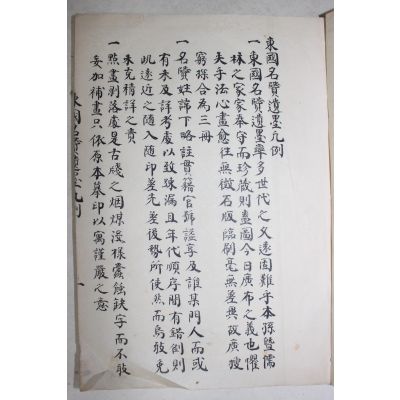 東國名賢遺墨凡例
一 東國名賢遺墨率多世代之久遠固難乎本孫曁儒
林之家家奉守而珍藏則盍圖今日廣布之義也懼
失手法心畫愈往無徵石版臨刷毫無差異故廣搜
窮採合為三冊
一 名賢姓諱下略註貫籍官號諡享及誰某門人而或
有未及詳考處以致疎漏且年代順序間有錯創則
此遠近之隨入隨印差先差後緣所使然而烏敢免
未克精詳之責
一 點畫剝落處是古牋之烟煤漫樣蠹蝕缺字而不敢
妄加補畫只依原本摹印以寓謹嚴之意
東國名賢遺墨凡例
一